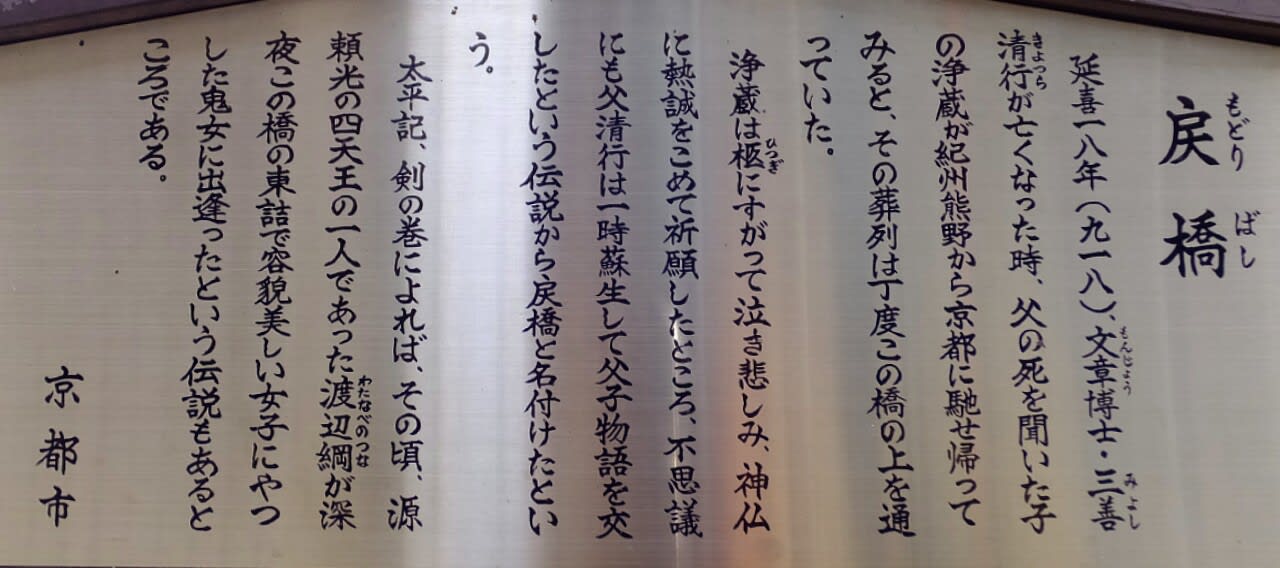 戻橋
もどりばし
延喜一八年（九一八）、文章博士・三善
もんじょう
みよし
清行が亡くなった時、父の死を聞いた子
きよつら
の浄蔵が紀州熊野から京都に馳せ帰って
みると、その葬列は丁度この橋の上を通
っていた。
浄蔵は柩にすがって泣き悲しみ、神仏
ひつぎ
に熱誠をこめて祈願したところ、不思議
にも父清行は一時蘇生して父子物語を交
したという伝説から戻橋と名付けたとい
う。
太平記、剣の巻によれば、その頃、源
頼光の四天王の一人であった渡辺綱が深
わたなべのつな
夜この橋の東詰で容貌美しい女子にやつ
した鬼女に出逢ったという伝説もあると
ころである。
京都市